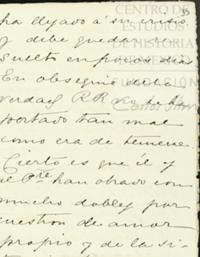 ha llegado á su crisis
y debe quedar
suelto en pocos dias
En obsequio de la
verdad R.R. no se ha
portado tan mal
como era de temerse.
Cierto es que él y
el Pte. han obrado con
mucho doblez por
cuestion de amor
propio y de la si-
CENTRO DE
ESTUDIOS
DE HISTORIA
FUNDACIÓN